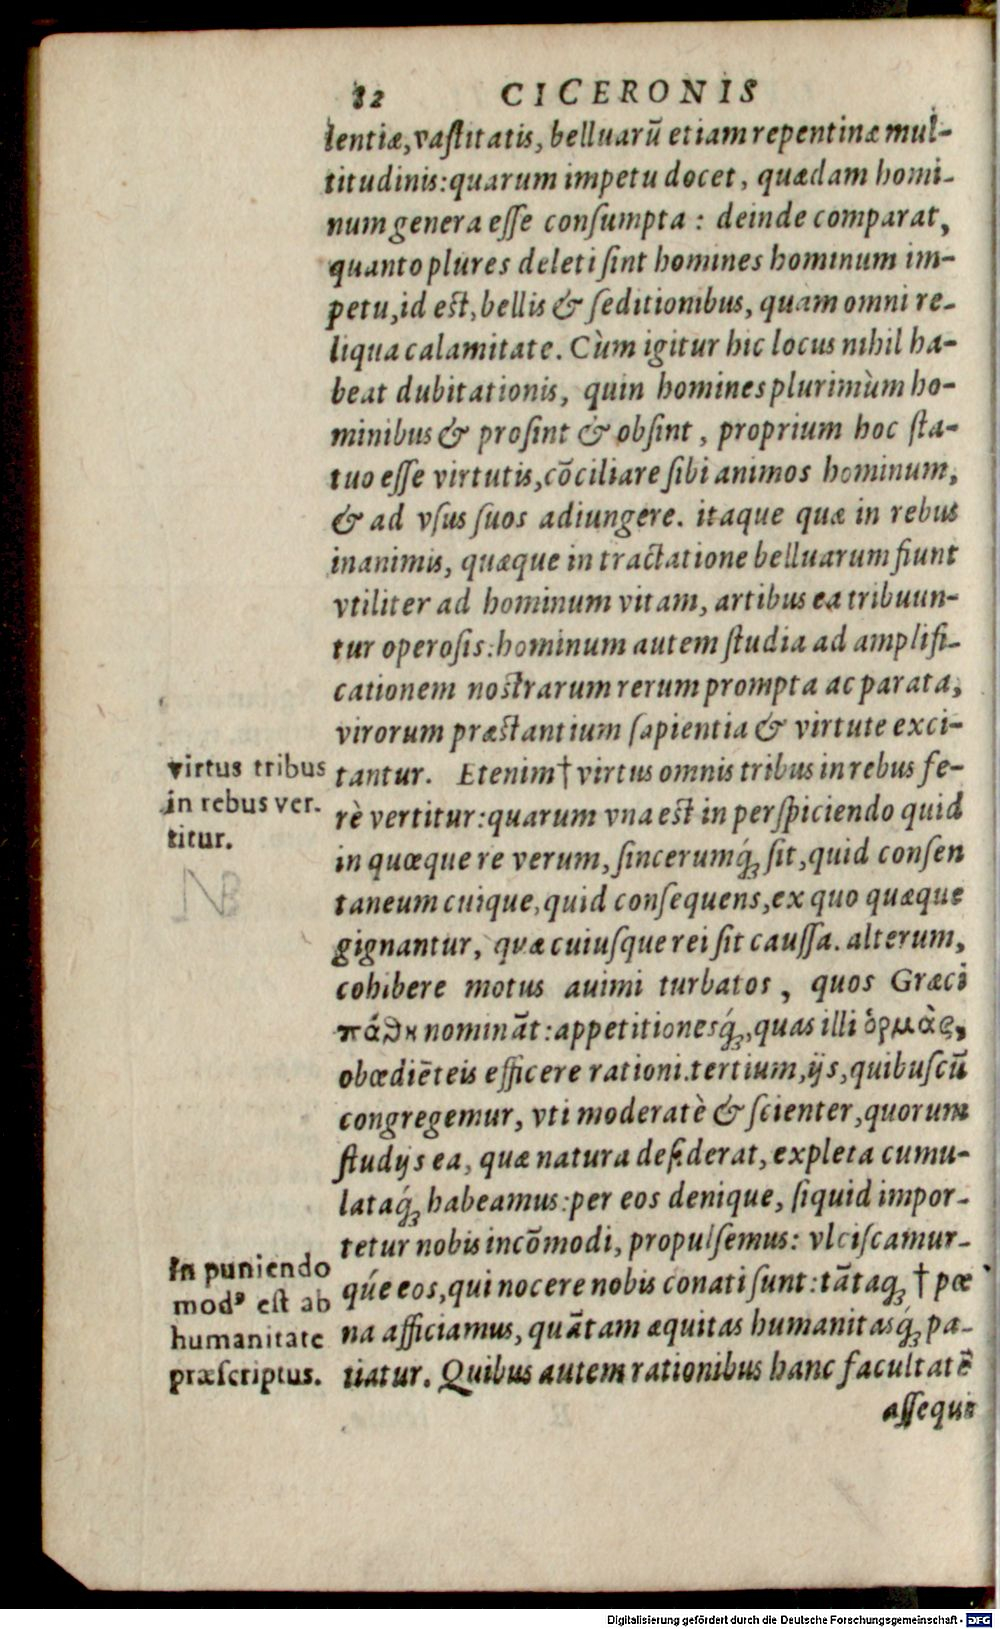 82 CICERONIS
lentiæ, vaſtitatis, belluarũ etiam repentinæ mul-
titudinis: quarum impetu docet, quædam homi-
num genera eſſe conſumpta: deinde comparat,
quanto plures deleti ſint homines hominum im-
petu, id eſt, bellis & ſeditionibus, quàm omni re-
liqua calamitate. Cùm igitur hic locus nihil ha-
beat dubitationis, quin homines plurimùm ho-
minibus & proſint & obſint, proprium hoc ſta-
tuo eſſe virtutis, cõciliare ſibi animos hominum,
& ad vſus ſuos adiungere. itaque quæ in rebus
inanimis, quæque in tractatione belluarum fiunt
vtiliter ad hominum vitam, artibus ea tribuun-
tur operoſis: hominum autem ſtudia ad amplifi-
cationem noſtrarum rerum prompta ac parata,
virorum præſtantium ſapientia & virtute exci-
virtus tribus
in rebus ver.
titur.
NB
tantur. Etenim † virtus omnis tribus in rebus fe-
rè vertitur: quarum vna eſt in perſpiciendo quid
in quæque re verum, ſincerumq́ꝫ ſit, quid conſen
taneum cuique, quid conſequens, ex quo quæque
gignantur, quæ cuiuſque rei ſit cauſſa. alterum,
cohibere motus auimi turbatos, quos Græci
πάθη nominãt: appetitionesq́ꝫ, quas illi ὁρμὰς,
obœdiẽteis efficere rationi. tertium, ijs, quibuſcũ
congregemur, vti moderatè & ſcienter, quorum
ſtudijs ea, quæ natura deſiderat, expleta cumu-
lataq́ꝫ habeamus: per eos denique, ſiquid impor-
tetur nobis incõmodi, propulſemus: vlciſcamur-
In puniendo
modꝰ eſt ab
humanitate
præſcriptus.
qúe eos, qui nocere nobis conati ſunt: tãtaqꝫ † pœ
na afficiamus, quãtam æquitas humanitasq́ꝫ pa-
tiatur. Quibus autem rationibus hanc facultatẽ
aſſequi
Digitalisierung gefördert durch die Deutsche Forschungsgemeinschaft - DFG